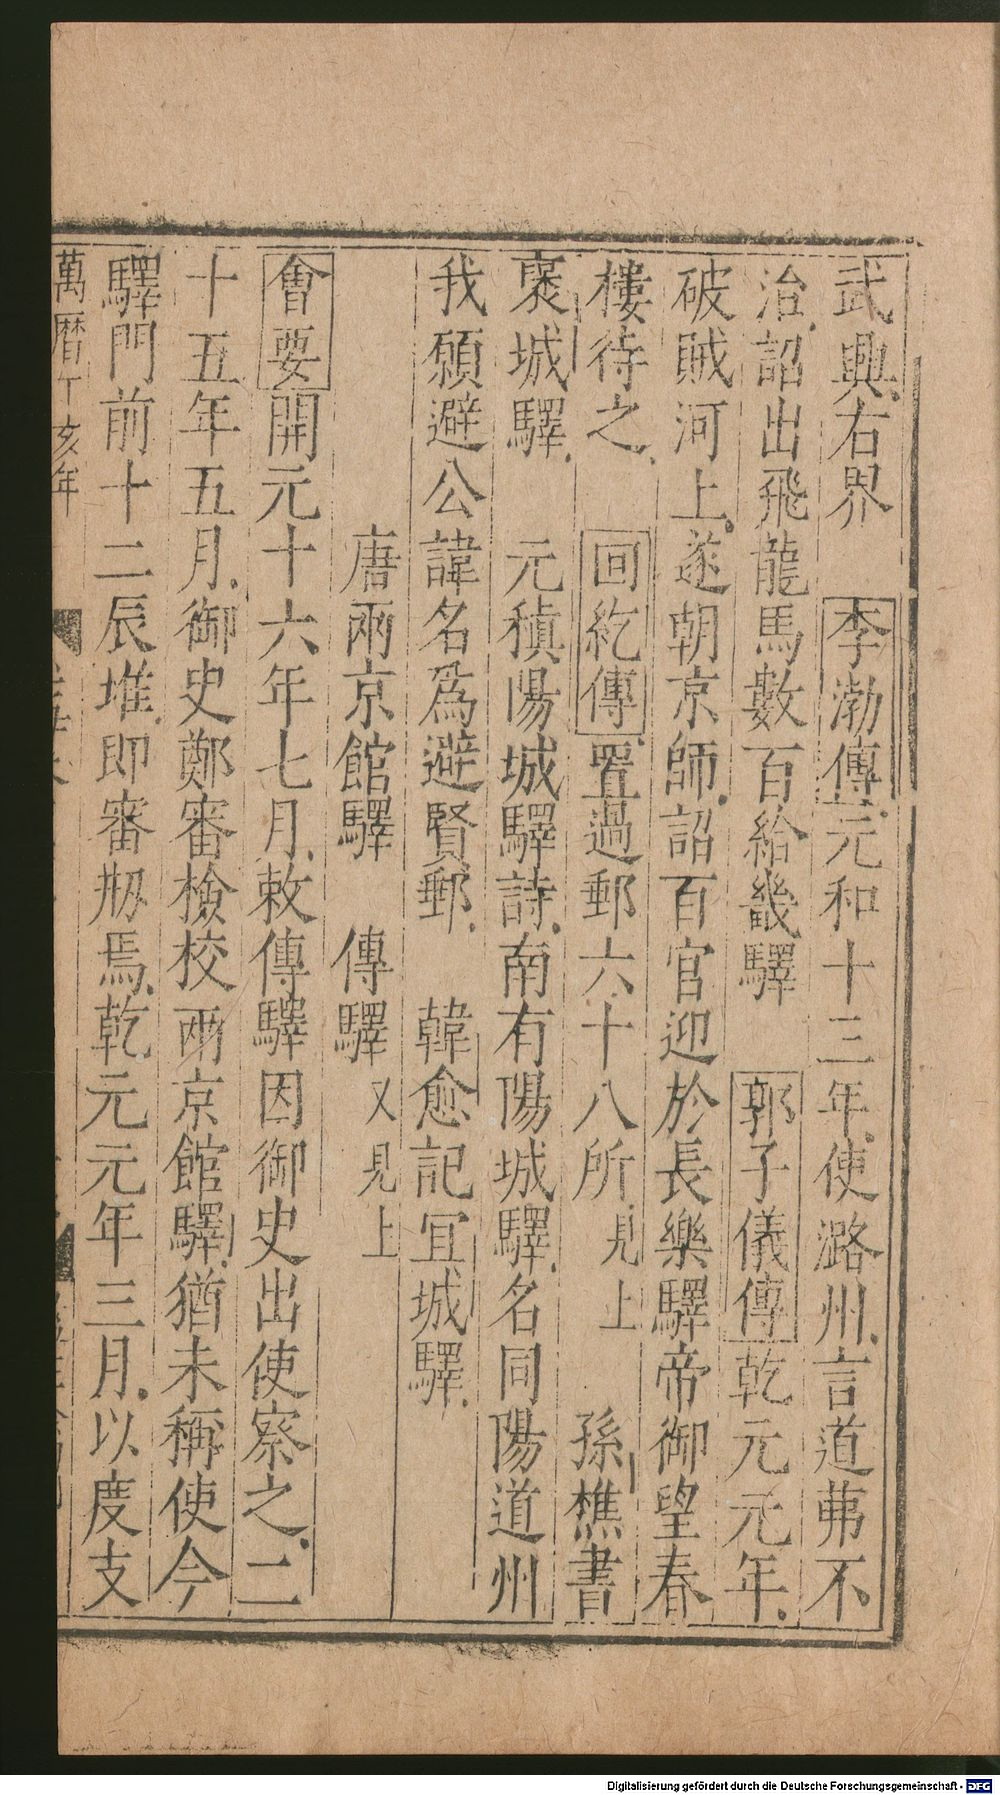 武興右界　李渤傳元和十三年使潞州言道茀不
治詔出飛龍馬數百給畿驛　郭子儀傳乾元元年
破賊河上遂朝京師詔百官迎於長樂驛帝御望春
樓待之　回紇傳置過郵六十八所見上　孫樵書
褒城驛　元稹陽城驛詩南有陽城驛名同陽道州
我願避公諱名爲避賢郵　韓愈記宜城驛
唐兩京館驛　傳驛又見上
會要開元十六年七月敕傳驛因御史出使察之二
十五年五月御史鄭審檢校兩京館驛猶未稱使今
驛門前十二辰堆即審剏焉乾元元年三月以度支
萬曆丁亥年
Digitalisierung gefördert durch die Deutsche Forschungsgemeinschaft - DFG